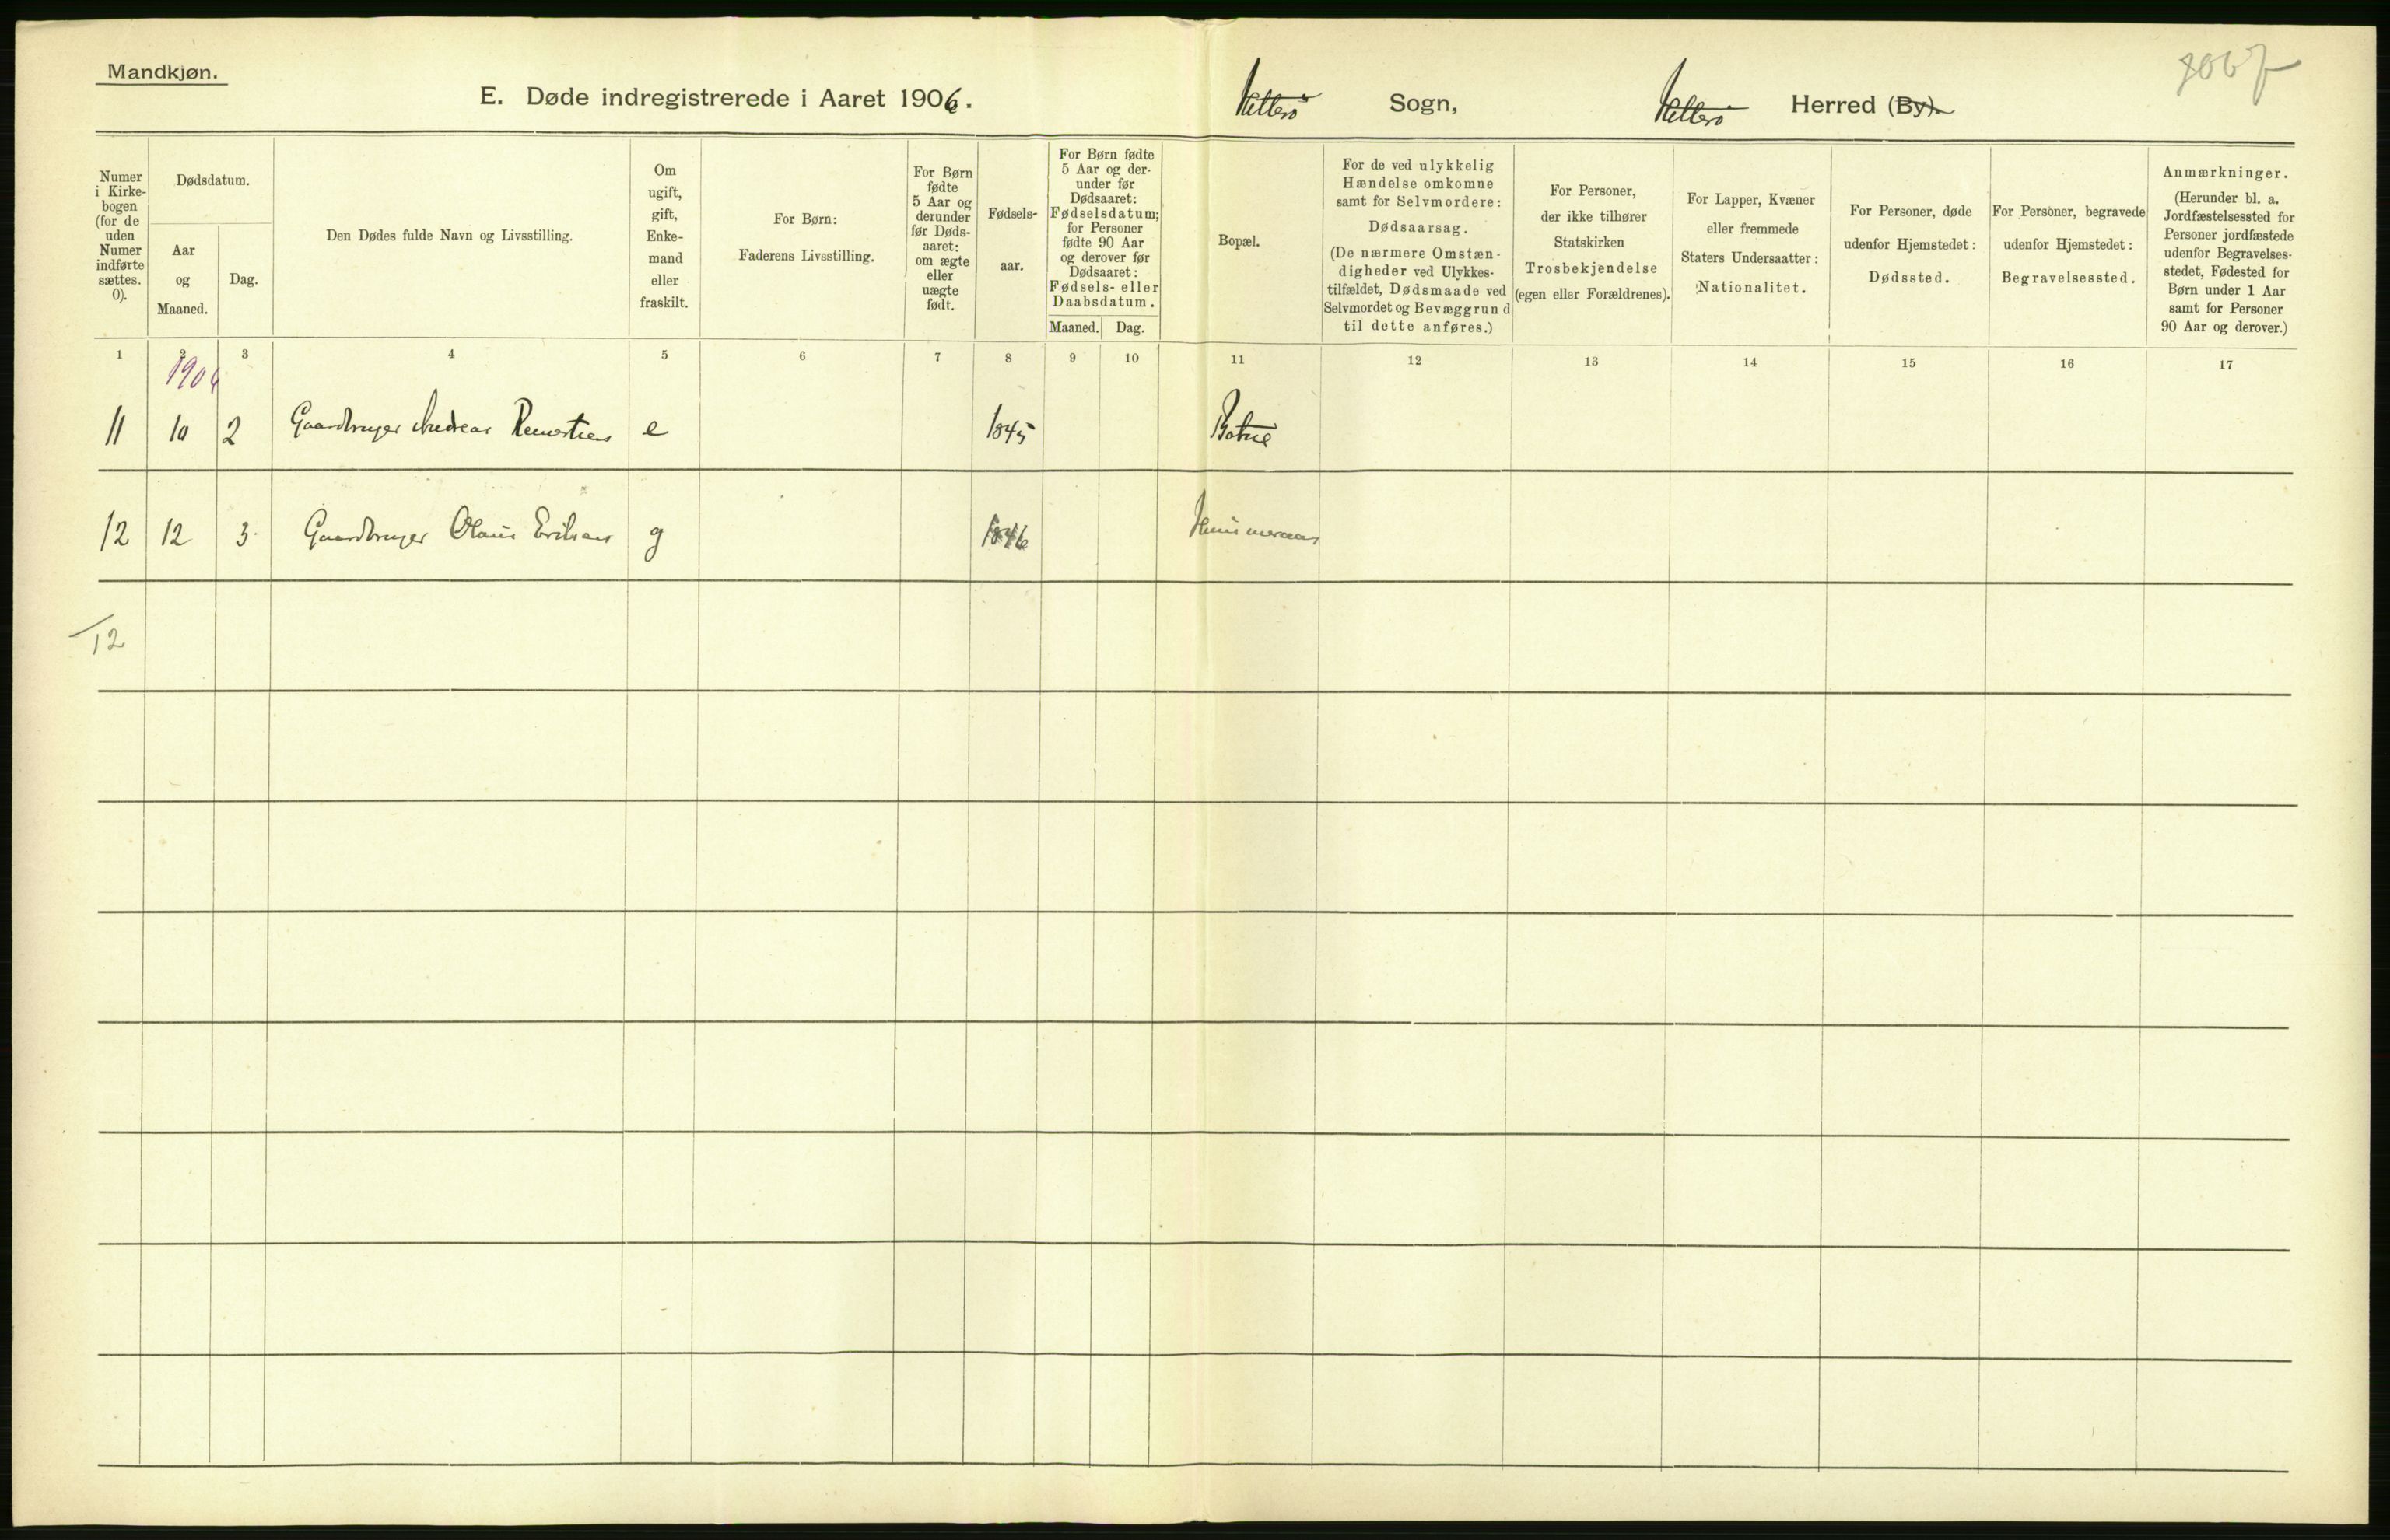 Mandkjøn.
E. Døde indregistrerede i Aaret 1906.
Sogn,
Herred (By).
Numer i Kirke-bogen (for de uden Numer indførte sættes. 0).
Dødsdatum.
Aar og Maaned.
Dag.
Den Dødes fulde Navn og Livsstilling.
Om ugift, gift, Enke-mand eller fraskilt.
For Børn: Faderens Livsstilling.
For Børn fødte 5 Aar og derunder før Døds-aaret: om ægte eller uægte født.
Fødsels-aar.
For Børn fødte 5 Aar og der-under før Dødsaaret: Fødselsdatum; for Personer fødte 90 Aar og derover før Dødsaaret: Fødsels- eller Daabsdatum.
Maaned.
Dag.
Bopæl.
For de ved ulykkelig Hændelse omkomne samt for Selvmordere: Dødsaarsag. (De nærmere Omstæn-digheder ved Ulykkes-tilfældet, Dødsmaade ved Selvmordet og Bevæggrund til dette anføres.)
For Personer, der ikke tilhører Statskirken Trosbekjendelse (egen eller Forældrenes).
For Lapper, Kvæner eller fremmede Staters Undersaatter: Nationalitet.
For Personer, døde udenfor Hjemstedet: Dødssted.
For Personer, begravede udenfor Hjemstedet: Begravelsessted.
Anmærkninger. (Herunder bl. a. Jordfæstelsessted for Personer jordfæstede udenfor Begravelses-stedet, Fødested for Børn under 1 Aar samt for Personer 90 Aar og derover.)
1 2 3 4 5 6 7 8 9 10 11 12 13 14 15 16 17
1906
11 10 2 Gaardbruger Andreas e 1845 Botne
12 12 3 Gaardbruger Olaus Eriksen g 1846
12